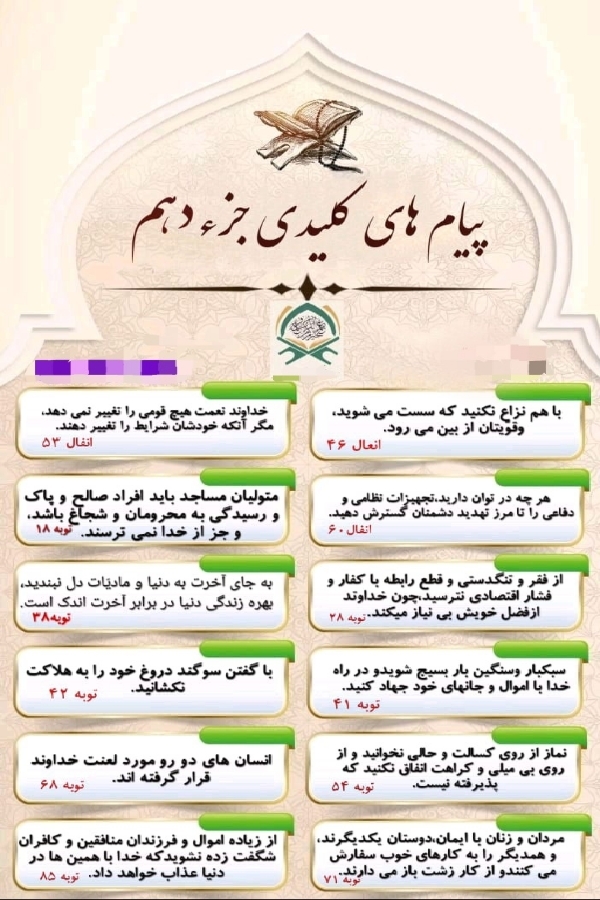 پیام های کلیدی جزء دهم
با هم نزاع نکنید که سست می شوید،
وقوتان از بین می رود.
انعال ۴۶
خداوند نعمت هیچ قومی را تغییر نمی دهد،
مگر آنکه خودشان شرایط را تغییر دهند.
انفال ۵۳
هر چه در توان دارید،تجهیزات نظامی و
دفاعی را تا مرز تهدید دشمنان گسترش دهید.
انفال ۶۰
متولیان مساجد باید افراد صالح و پاک
و رسیدگی به محرومان و شجاغ باشد،
و جز از خدا نمی ترسند.
توبه ۱۸
از فقر و تنگدستی و قطع رابطه با کفار و
فشار اقتصادی نترسید،چون خداوند
ازفضل خویش بی نیاز میکند.
توبه ۲۸
به جای آخرت به دنیا و مادیّات دل نبندید،
بهره زندگی دنیا در برابر آخرت اندک است.
توبه۳۸
سبکبار وسنگین بار بسیج شویدو در راه
خدا با اموال و جانهای خود جهاد کنید.
توبه ۴۱
با گفتن سوگند دروغ خود را به هلاکت
نکشانید.
توبه ۴۲
نماز از روی کسالت و حالی نخوانید و از
روی بی میلی و کراهت انفاق نکنید که
پذیرفته نیست.
توبه ۵۴
انسان های دو رو مورد لعنت خداوند
قرار گرفته اند.
توبه ۶۸
مردان و زنان با ایمان،دوستان یکدیگرند،
و همدیگر را به کارهای خوب سفارش
می کنندو از کار زشت باز می دارند.
توبه ۷۱
از زیاده اموال و فرزندان منافقین و کافران
شگفت زده نشویدکه خدا با همین ها در
دنیا عذاب خواهد داد.
توبه ۸۵